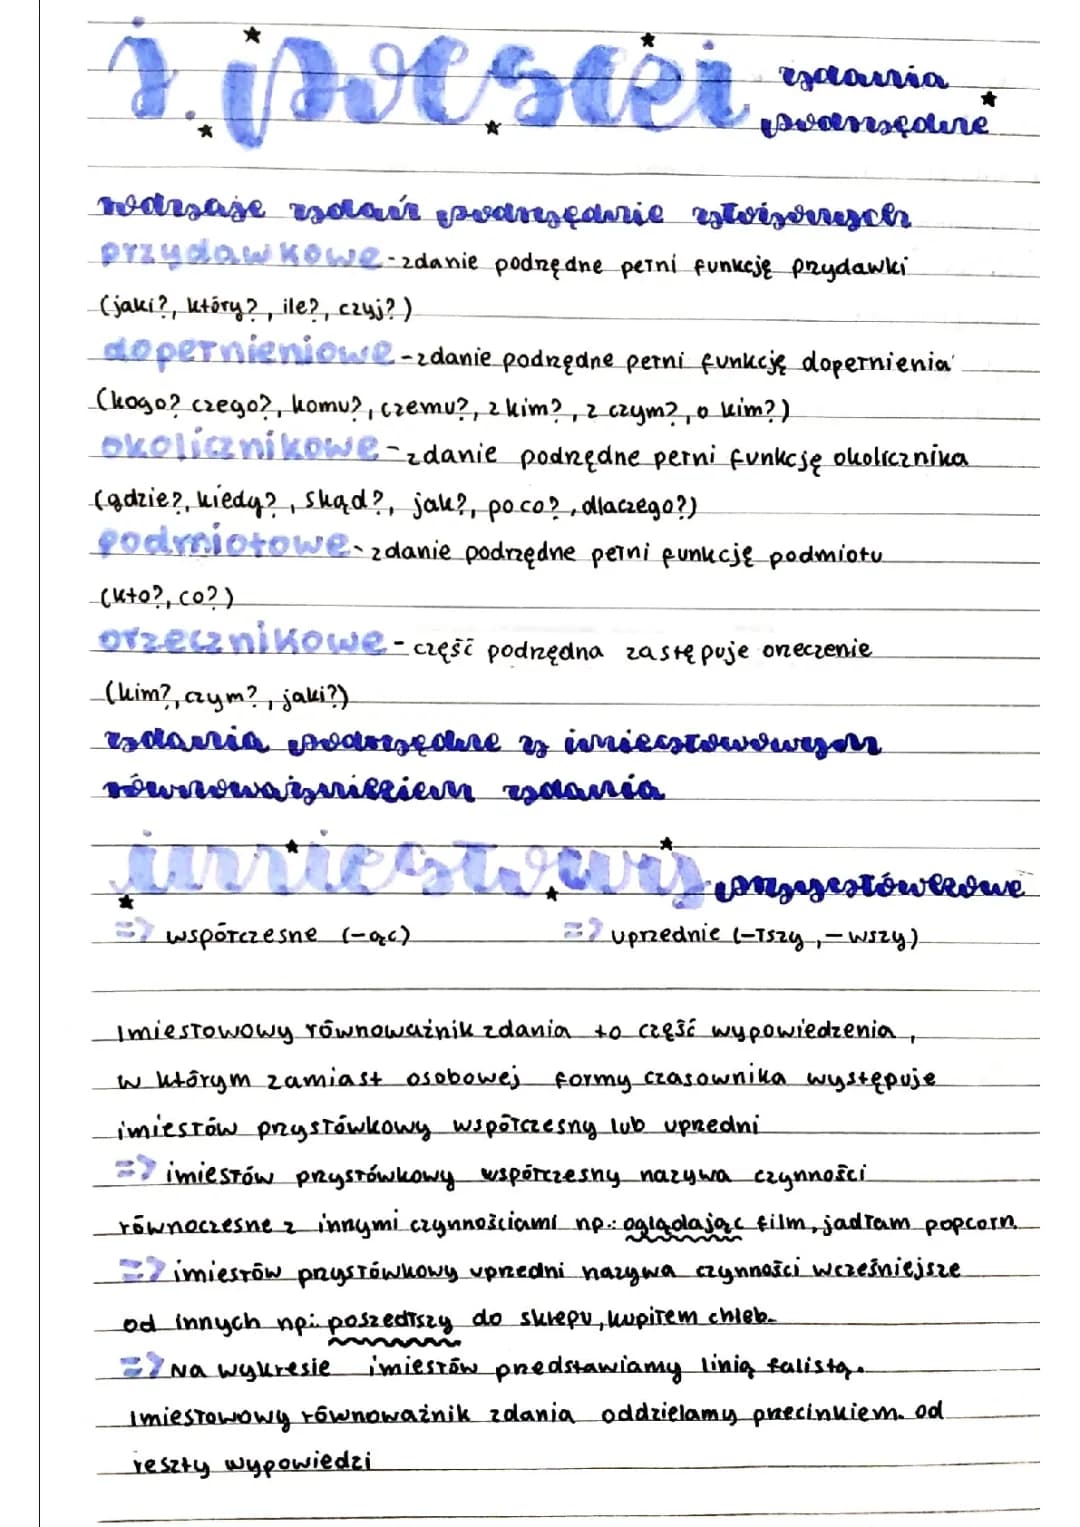 j. polski zdania
podrzędne
rodzaje zdań podrzędnie złożonych
przydawkowe - zdanie podrzędne pełni funkcję przydawki
(jaki?, który?, ile?, czyj?)
dopełnieniowe - zdanie podrzędne pełni funkcję dopełnienia
(kogo? czego?, komu?, czemu?, z kim?, z czym?, o kim?)
okolicznikowe - zdanie podrzędne pełni funkcję okolicznika
(gdzie?, kiedy?, skąd?, jak?, po co?, dlaczego?)
podmiotowe - zdanie podrzędne pełni funkcję podmiotu
(kto?, co?)
orzecznikowe - część podrzędna zastępuje orzeczenie
(kim?, czym?, jaki?)
zdania podrzędne z imiesłowowym
równoważnikiem zdania
imiesłowy przysłówkowe
=> współczesne (-ąc) => uprzednie (-łszy, -wszy)
Imiesłowowy równoważnik zdania to część wypowiedzenia,
w którym zamiast osobowej formy czasownika występuje
imiesłów przysłówkowy współczesny lub uprzedni
=> imiesłów przysłówkowy współczesny nazywa czynności
równoczesne z innymi czynnościami np.: oglądając film, jadłam popcorn
=> imiesłów przysłówkowy uprzedni nazywa czynności wcześniejsze
od innych np: poszedłszy do sklepu, kupiłem chleb.
=> Na wykresie imiesłów przedstawiamy linią falistą.
Imiesłowowy równoważnik zdania oddzielamy przecinkiem. od
reszty wypowiedzi